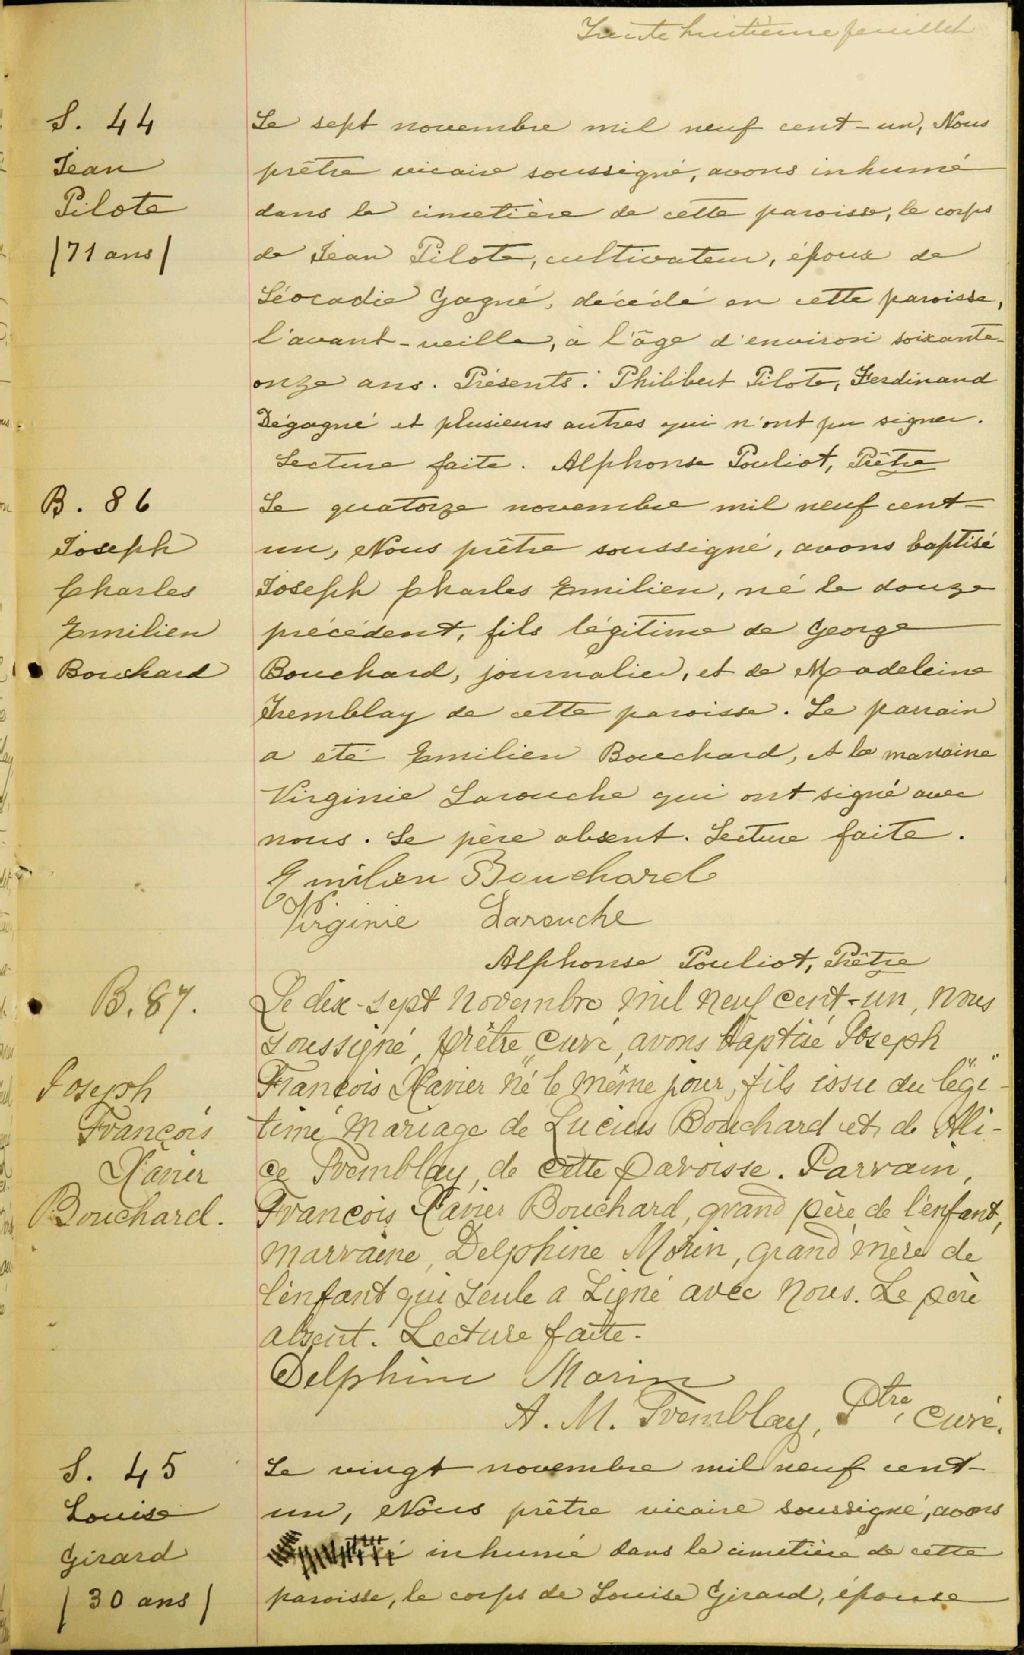 Trente huitième feuillet
S. 44
Jean
Pilote
/71 ans/
Le sept novembre mil neuf cent-un, Nous
prêtre vicaire soussigné, avons inhumé
dans le cimetière de cette paroisse, le corps
de Jean Pilote, cultivateur, époux de
Léocadie Gagné, décédé en cette paroisse,
l'avant-veille, à l'âge d'environ soixante-
onze ans. Présents: Philibert Pilote, Ferdinand
Dégagné et plusieurs autres qui n'ont pu signer.
Lecture faite. Alphonse Pouliot, Prêtre
B. 86
Joseph
Charles
Emilien
Bouchard
Le quatorze novembre mil neuf cent-
un, Nous prêtre soussigné, avons baptisé
Joseph Charles Emilien, né le douze
précédent, fils légitime de George
Bouchard, journalier, et de Madeleine
Tremblay de cette paroisse. Le parrain
a été Emilien Bouchard, et la marraine
Virginie Larouche qui ont signé avec
nous. Le père absent. Lecture faite.
Emilien Bouchard
Virginie Larouche
Alphonse Pouliot, Prêtre
B. 87.
Joseph
François
Xavier
Bouchard.
Le dix-sept novembre mil neuf cent-un, nous
soussigné, prêtre curé, avons baptisé Joseph
François Xavier né le même jour, fils issu du légi-
time mariage de Lucius Bouchard et de Ali-
ce Tremblay, de cette paroisse. Parrain,
François Xavier Bouchard, grand père de l'enfant,
marraine, Delphine Morin, grand'mère de
l'enfant qui seule a signé avec nous. Le père
absent. Lecture faite.
Delphine Morin
A. M. Tremblay, Ptre, curé.
S. 45
Louise
Girard
/30 ans/
Le vingt novembre mil neuf cent-
un, Nous prêtre vicaire soussigné, avons
inhumé dans le cimetière de cette
paroisse, le corps de Louise Girard, épouse